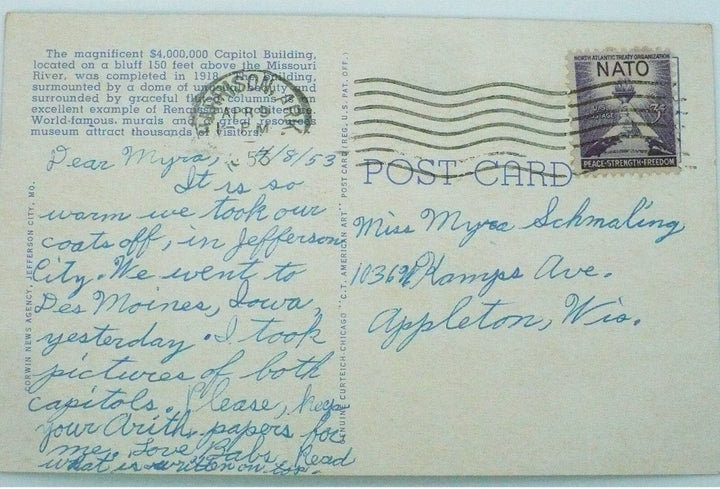 The magnificent $4,000,000 Capitol Building,
located on a bluff 150 feet above the Missouri
River, was completed in 1918. The building,
surmounted by a dome of and
surrounded by graceful columns, an
excellent example of Renaissance
World-famous murals and great resources
museum attract thousands visitors.
HARRISON, ARK.
APR 9
PM
53
NORTH ATLANTIC TREATY ORGANIZATION
NATO
3¢
PEACE-STRENGTH-FREEDOM
POST CARD
Dear Myra, 4/8/53
It is so
warm we took our
coats off, in Jefferson
City. We went to
Des Moines, Iowa,
yesterday. I took
pictures of both
capitols. Please, keep
your Arith. papers for
me. Love Babs. Read
what is written on top.
Miss Myra Schmaling
1036 Kamps Ave.
Appleton, Wis.
CORWIN NEWS AGENCY, JEFFERSON CITY, MO.
GENUINE CURTEICH-CHICAGO "C.T. AMERICAN ART" POST CARD (REG. U.S. PAT. OFF.)